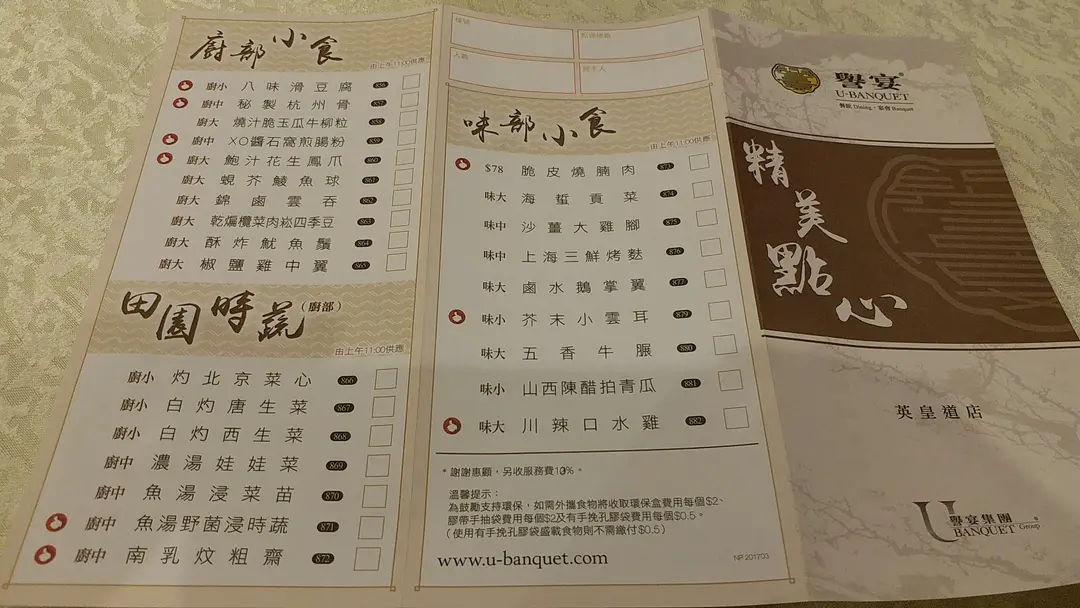 廚部小食
由上午11:00供應
廚小 八味滑豆腐 856
廚中 秘製杭州骨 857
廚大 燒汁脆玉瓜牛柳粒 858
廚中 XO醬石窩煎腸粉 859
廚大 鮑汁花生鳳爪 860
廚大 蜆芥鯪魚球 861
廚大 錦鹵雲吞 862
廚大 乾煸欖菜肉崧四季豆 863
廚大 酥炸魷魚鬚 864
廚大 椒鹽雞中翼 865
田園時蔬(廚部)
由上午11:00供應
廚小 灼北京菜心 866
廚小 白灼唐生菜 867
廚小 白灼西生菜 868
廚中 濃湯娃娃菜 869
廚中 魚湯浸菜苗 870
廚中 魚湯野菌浸時蔬 871
廚中 南乳炆粗齋 872
檯號
點菜時間
人數
經手人
味部小食
由上午11:00供應
$78 脆皮燒腩肉 873
味大 海蜇貢菜 874
味中 沙薑大雞腳 875
味中 上海三鮮烤麩 876
味大 鹵水鵝掌翼 877
味小 芥末小雲耳 879
味大 五香牛𦟌 880
味小 山西陳醋拍青瓜 881
味大 川辣口水雞 882
* 謝謝惠顧，另收服務費10%。
溫馨提示：
為鼓勵支持環保，如需外攜食物將收取環保盒費用每個$2、
膠帶手抽袋費用每個$2及有手挽孔膠袋費用每個$0.5。
（使用有手挽孔膠袋盛載食物則不需繳付$0.5）
www.u-banquet.com
NP 201703
譽宴
U-BANQUET
餐飲 Dining・宴會 Banquet
精美點心
英皇道店
譽宴集團
U BANQUET Group